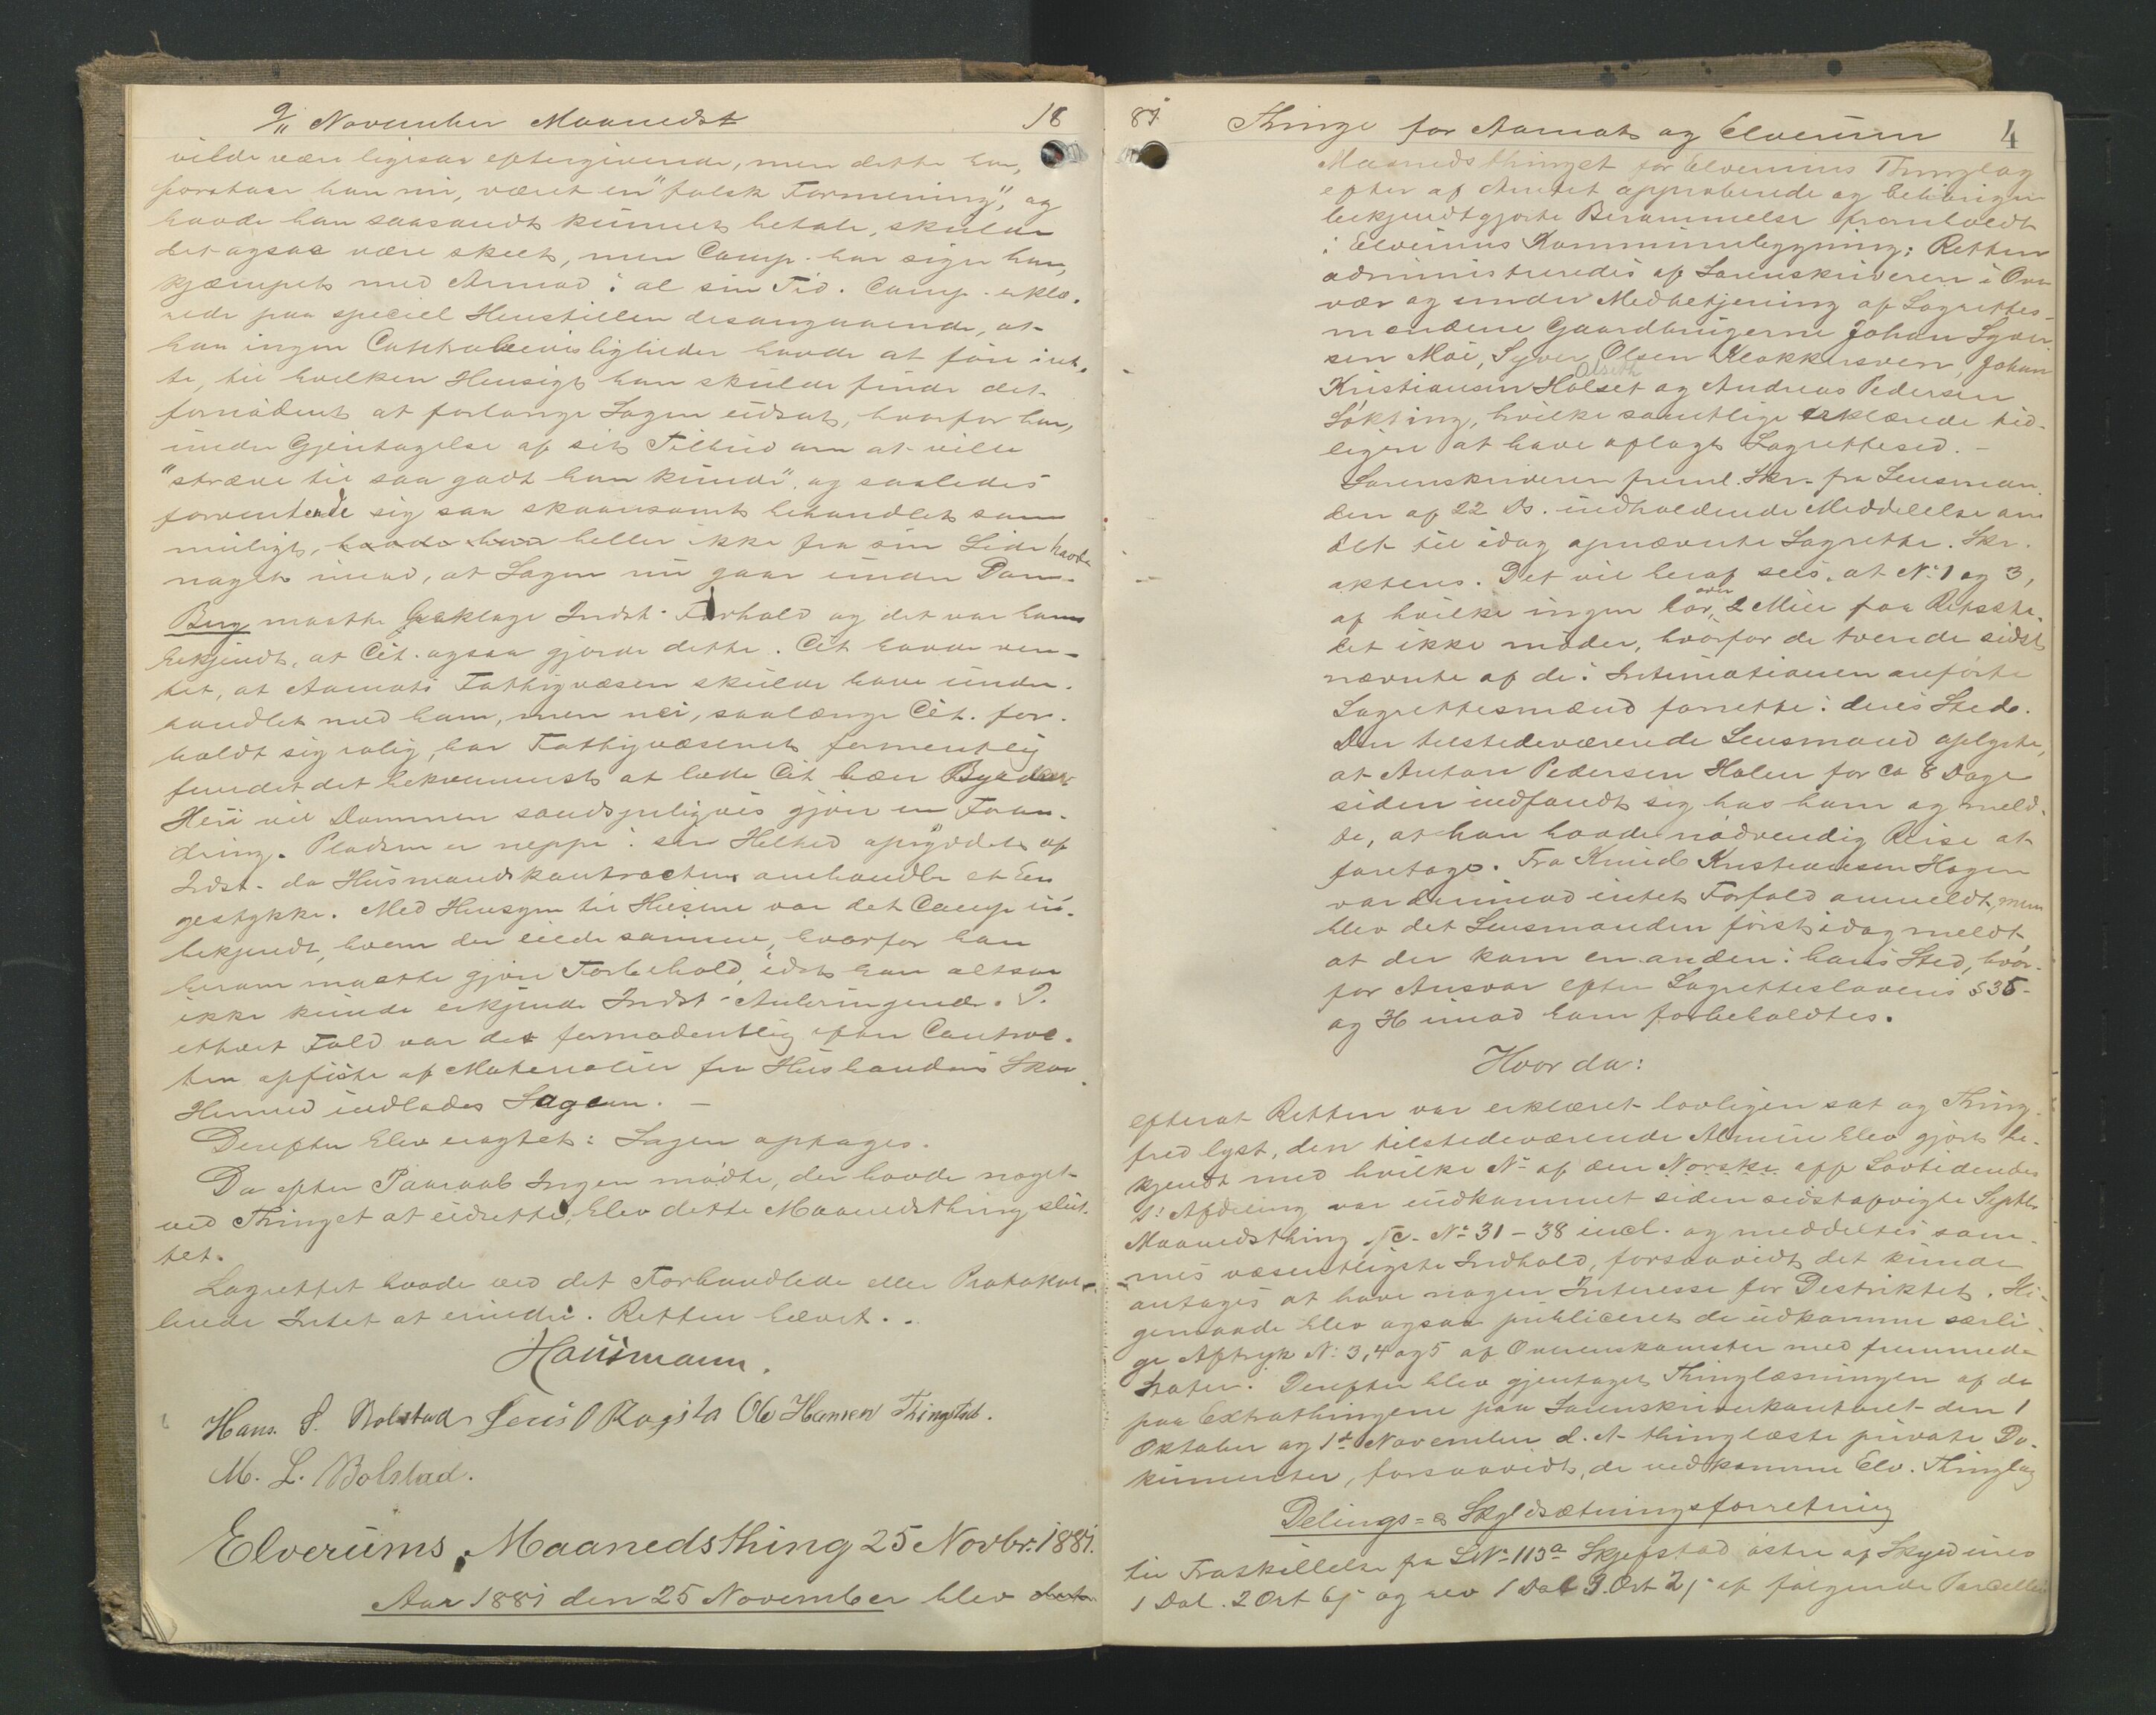 9/11 November Maanedst 18
vilde være ligesaa eftergivende, men dette har,
forstaar han nu, været en "falsk Formening", og
havde han saasandt kunnet betale, skulde
det ogsaa være skeet, men Comp. har siger han,
kjæmpet med Armod i al sin Tid. Comp. erklæ-
rede paa speciel Henstillen desangaaende, at
han ingen Contrabevisligheder havde at føre i ret-
te, til hvilken Hensigt han skulde finde det
fornødent at forlange Sagen udsat, hvorfor han,
under Gjentagelse af sit Tilbud om at ville
"stræve til saa godt han kunde" og saaledes
forventende sig saa skaansomt behandlet som
muligt, havde han heller ikke fra sin Side havde
noget imod, at Sagen nu gaar under Dom.
Berg maatte beklage Indst. Forhold og det var ham
bekjendt, at Cit. ogsaa gjorde dette. Cit havde ven-
tet, at Aamots Fattigvæsen skulde have under-
handlet med ham, men nei, saalænge Cit. for-
holdt sig rolig, har Fattigvæsenet formentlig
fundet det bekvemmest at lade Cit bære Byrden.
Heri vil Dommen sandsynligvis gjøre en Foran-
dring. Pladsen er neppe i sin Helhed opryddet af
Indst. da Husmandskontracten omhandler et En-
gestykke. Med Hensyn til Husene var det Comp u-
bekjendt, hvem der eiede samme, hvorfor han
herom maatte gjøre Forbehold, idet han altsaa
ikke kunde erkjende Indst. Anbringende. I
ethvert Fald var det formodentlig efter Contrac-
ten opført af Materialier fra Husbondens Skov.
Hermed indlades Sagen. –
Derefter blev eragtet: Sagen optages.
Da efter Paaraab Ingen mødte, der havde noget
ved Thinget at udrette, blev dette Maanedsthing slut-
tet.
Lagrettet havde ved det Forhandlede eller Protokol-
lerede Intet at erindre. Retten hævet. .
Hausmann.
Hans. S. Bolstad Ole Hansen Thingstad.
M. L. Bolstad.
Elverums Maanedsthing 25 Novbr. 1881.
Aar 1881 den 25 November blev
81 Thinge for Aamot og Elverum 4
Maanedsthinget for Elverums Thinglag
efter af Amtet approberede og behørigen
bekjendtgjorte Berammelse fremholdt
i Elverums Kommunebygning; Retten
administreredes af Sorenskriveren i Over-
vær og under Medbetjening af Lagrettes-
mændene Gaardbrugerne Johan Syver-
sen Moe, Syver Olsen Klokkersveen, Johan
Olseth
Kristiansen Holset og Andreas Pedersen
Søkting, hvilke samtlige erklærede tid-
ligere at have aflagt Lagrettesed. –
Sorenskriveren freml. Skr. fra Lensman-
den af 22 ds. indholdende Meddelelse om
det til idag opnævnte Lagrette. Skr.
akteres. Det vil heraf sees, at No 1 og 3,
over
af hvilke ingen bor 2 Mile fra Retsste-
det ikke møder, hvorfor de tvende sidst
nævnte af de i Intimationen anførte
Lagrettesmænd forrette i deres Sted.
Den tilstedeværende Lensmand oplyste,
at Anton Pedersen Holen for ca 8 Dage
siden indfandt sig hos ham og meld-
te, at han havde nødvendig Reise at
foretage. Fra Knud Kristiansen Hagen
var derimod intet Forfald anmeldt, men
blev det Lensmanden først idag meldt,
at der kom en anden i hans Sted, hvor-
for Ansvar efter Lagretteslovens § 35
og 36 imod ham forbeholdtes.
Hvor da:
efterat Retten var erklæret lovligen sat og Thing-
fred lyst, den tilstedeværende Almue blev gjort be-
kjendt med hvilke No af den Norske off Lovtidendes
1ste Afdeling var udkommet siden sidstafvigte Septbr
Maanedsthing, sc. No 31 – 38 incl. og meddeltes sam-
mes væsentligste Indhold, forsaavidt det kunde
antages at have nogen Interesse for Destriktet. Li-
gemaade blev ogsaa publiceret de udkomne særli-
ge Aftryk No 3, 4 og 5 af Overenskomster med fremmede
Stater. Derefter blev gjentaget Thinglæsningen af de
paa Extrathingene paa Sorenskriverkontoret den 1
Oktober og 1st November d. A. thinglæste private Do-
kumenter, forsaavidt de vedkomme Elv. Thinglag
Delings- & Skyldsætningsforretning
til Fraskillelse fra LNo 113a Skjefstad østre af Skyld urev
1 Dal. 2 Ort 6 ß og rev 1 Dal 3 Ort 2 ß af følgende Parceller